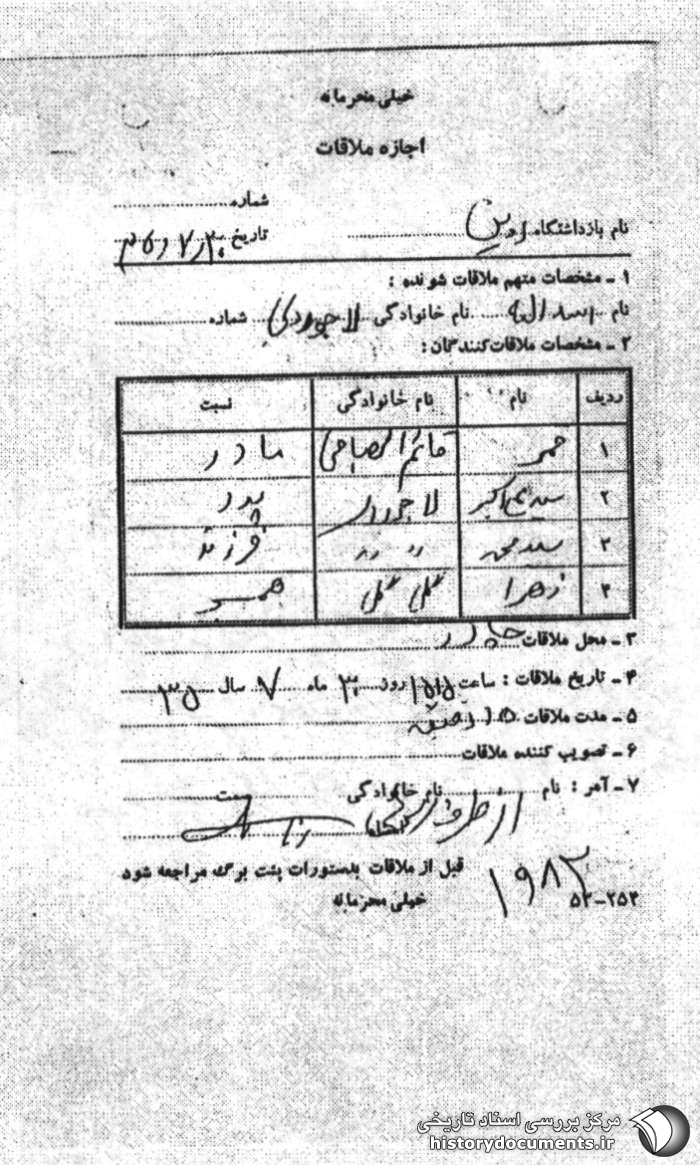 خیلی محرمانه
اجازه ملاقات
شماره
نام بازداشتگاه اوین تاریخ ۳۰ر۷ر۳۵
۱ - مشخصات متهم ملاقات شونده :
نام اسداله نام خانوادگی لاجوردی شماره
۲ - مشخصات ملاقات‌کنندگان :
ردیف نام نام خانوادگی نسبت
۱ قائم الصباحی مادر
۲ سید علی اکبر لاجوردی پدر
۳ سید محمد 〃 〃 فرزند
۴ زهرا گلی گلی همسر
۳ - محل ملاقات چادر
۴ - تاریخ ملاقات : ساعت روز ۳۰ ماه ۷ سال ۳۵
۵ - مدت ملاقات ۱۵ دقیقه
۶ - تصویب کننده ملاقات
۷ - آمر : نام نام خانوادگی سمت
از طرف امضاء
قبل از ملاقات بدستورات پشت برگ مراجعه شود
۱۹۸۳
۵۳-۲۵۴
خیلی محرمانه
مرکز بررسی اسناد تاریخی
historydocuments.ir